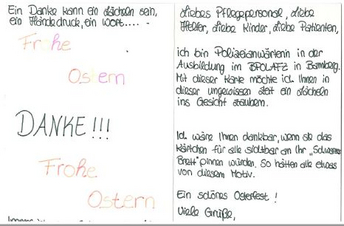 Ein Danke kann ein Lächeln sein,
ein Händedruck, ein Wort.....
Frohe
Ostern
DANKE!!!
Frohe
Ostern
Liebes Pflegepersonal, liebe
Helfer, liebe Kinder, liebe Patienten,
ich bin Polizeianwärterin in der
Ausbildung im in Bamberg.
Mit dieser Karte möchte ich Ihnen in
dieser ungewissen Zeit ein Lächeln
ins Gesicht zaubern.
Ich wäre Ihnen dankbar, wenn Sie das
Kärtchen für alle sichtbar an Ihr "Schwarzes
Brett" pinnen würden. So hätten alle etwas
von diesem Motiv.
Ein schönes Osterfest!
Viele Grüße,